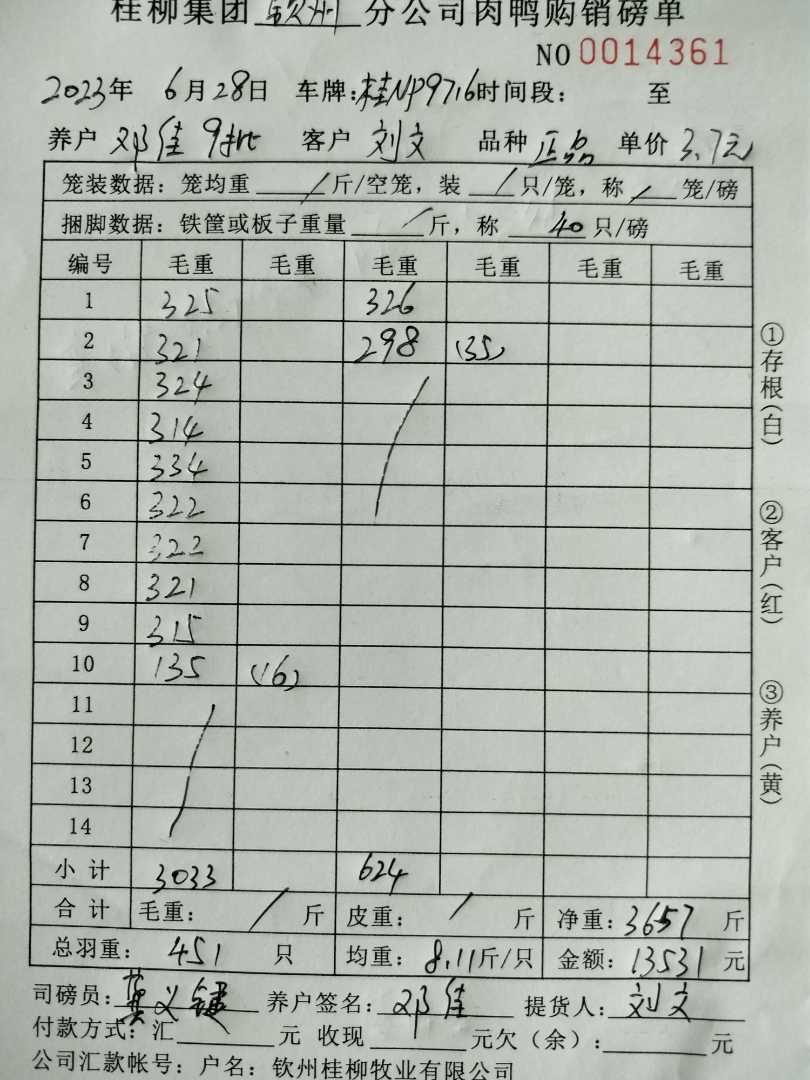 桂柳集团 钦州 分公司肉鸭购销磅单
NO 0014361
2023年 6月28日 车牌:桂NP9716时间段: 至
养户 邓佳 9批 客户 刘文 品种 正品 单价 3.7元
笼装数据:笼均重 / 斤/空笼,装 / 只/笼,称 / 笼/磅
捆脚数据:铁筐或板子重量 / 斤,称 40 只/磅
编号 毛重 毛重 毛重 毛重 毛重 毛重
1 325 326
2 321 298 (35)
3 324
4 314
5 334
6 322
7 322
8 321
9 315
10 135 (16)
11
12
13
14
小计 3033 624
合计 毛重: / 斤 皮重: / 斤 净重:3657 斤
总羽重: 451 只 均重: 8.11斤/只 金额:13531 元
司磅员:龚义键 养户签名:邓佳 提货人:刘文
付款方式:汇 元 收现 元欠(余): 元
公司汇款帐号:户名:钦州桂柳牧业有限公司
①存根(白)
②客户(红)
③养户(黄)